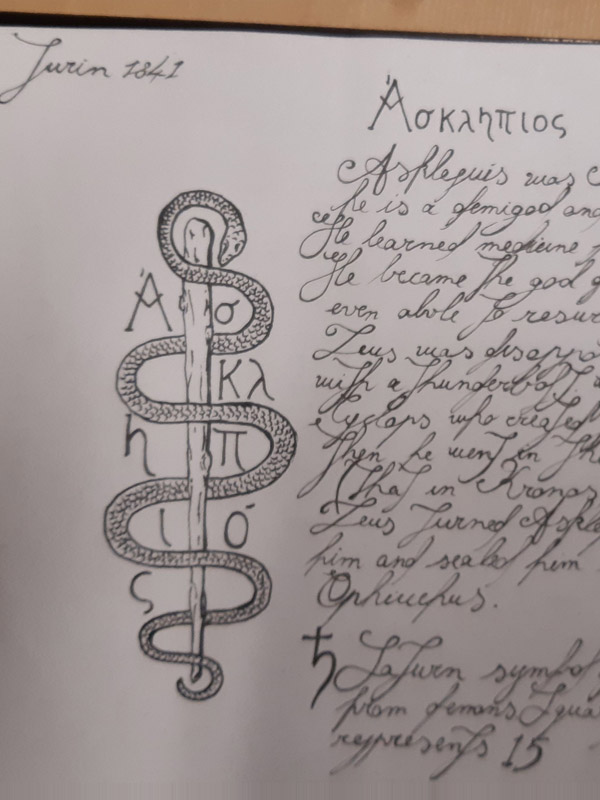 Turin 1841
Ἀσκληπιος
Ἀ σ
κλ
η π
ι ό
ς
Asklepuis was
he is a demigod and
He learned medicine
He became the god
even able to resur
Zeus was disappo
with a thunderbolt.
Cyclops who created
then he went in
(That in Kronos
Zeus turned Askl
him and sealed him
Ophiuchus.
♄ Saturn symbol
from demons Squa
reppresents 15